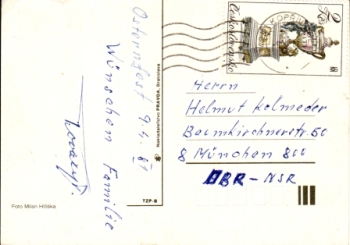 Osternfest 94. 81
Wünschen Familie
Foto Milan Hlôška
Nakladateľstvo PRAVDA, Bratislava
TZP-8
Československo
Herrn
Helmut Kolmeder
Baumkirchnerstr. 50
8 München 800
BR-NSR